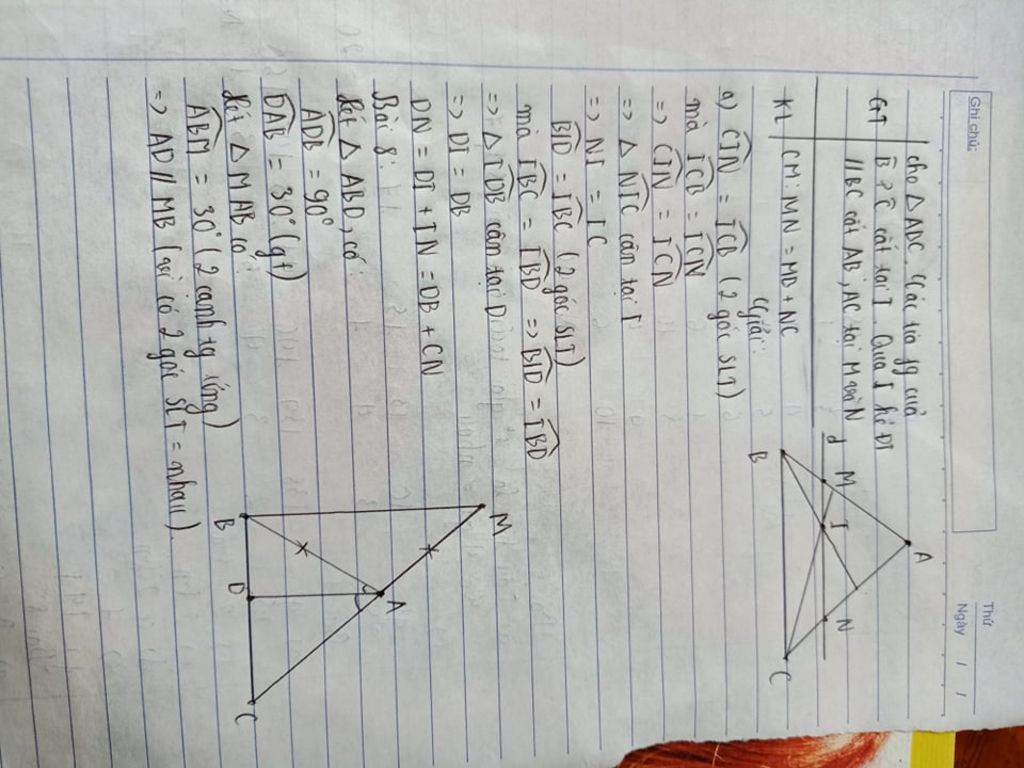 Ghi chú:
Thứ
Ngày / /
cho △ ABC. Các tia fg của
GT
B̂ và Ĉ cắt tại I. Qua I kẻ ĐT
// BC cắt AB, AC tại M và N
KL
CM: MN = MB + NC
Giải:
a) CIN = ICB (2 góc SLT)
mà ICB = ICN
=> CIN = ICN
=> △ NIC cân tại I
=> NI = IC
BID = IBC (2 góc SLT)
mà IBC = IBD => BID = IBD
=> △ IDB cân tại D
=> DI = DB
DN = DI + IN = DB + CN
Bài 8:
Xét △ ABD, có
ADB = 90°
DAB = 30° (gt)
Xét △ MAB có
ABM = 30° (2 cạnh tg ứng)
=> AD // MB (vì có 2 góc SLT = nhau).
A
d
M
I
N
B
C
M
A
B
D
C